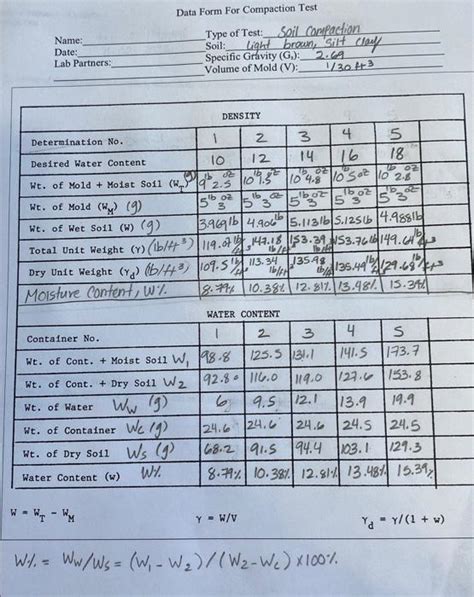 Data Form For Compaction Test
Name: Type of Test: Soil Compaction
Date: Soil: light brown, silt clay
Lab Partners: Specific Gravity (Gs): 2.69
Volume of Mold (V): 1/30 ft3
DENSITY
Determination No. 1 2 3 4 5
Desired Water Content 10 12 14 16 18
Wt. of Mold + Moist Soil (WT) (g) 9 lb 2.5 oz 10 lb 1.5 oz 10 lb 4.8 oz 10 lb 5 oz 10 lb 2.8 oz
Wt. of Mold (WM) (g) 5 lb 3 oz 5 lb 3 oz 5 lb 3 oz 5 lb 3 oz 5 lb 3 oz
Wt. of Wet Soil (W) (g) 3.969 lb 4.906 lb 5.113 lb 5.125 lb 4.988 lb
Total Unit Weight (γ) (lb/ft3) 119.07 lb/ft3 147.18 lb/ft3 153.39 lb/ft3 153.76 lb/ft3 149.64 lb/ft3
Dry Unit Weight (γd) (lb/ft3) 109.5 lb/ft3 113.34 lb/ft3 135.98 lb/ft3 135.49 lb/ft3 129.68 lb/ft3
Moisture Content, W% 8.79% 10.38% 12.81% 13.48% 15.39%
WATER CONTENT
Container No. 1 2 3 4 5
Wt. of Cont. + Moist Soil W1 98.8 125.5 131.1 141.5 173.7
Wt. of Cont. + Dry Soil W2 92.8 116.0 119.0 127.6 153.8
Wt. of Water Ww (g) 6 9.5 12.1 13.9 19.9
Wt. of Container Wc (g) 24.6 24.6 24.6 24.5 24.5
Wt. of Dry Soil Ws (g) 68.2 91.5 94.4 103.1 129.3
Water Content (w) W% 8.79% 10.38% 12.81% 13.48% 15.39%
W = WT - WM γ = W/V γd = γ/(1 + w)
W% = Ww/Ws = (W1 - W2) / (W2 - Wc) x 100%